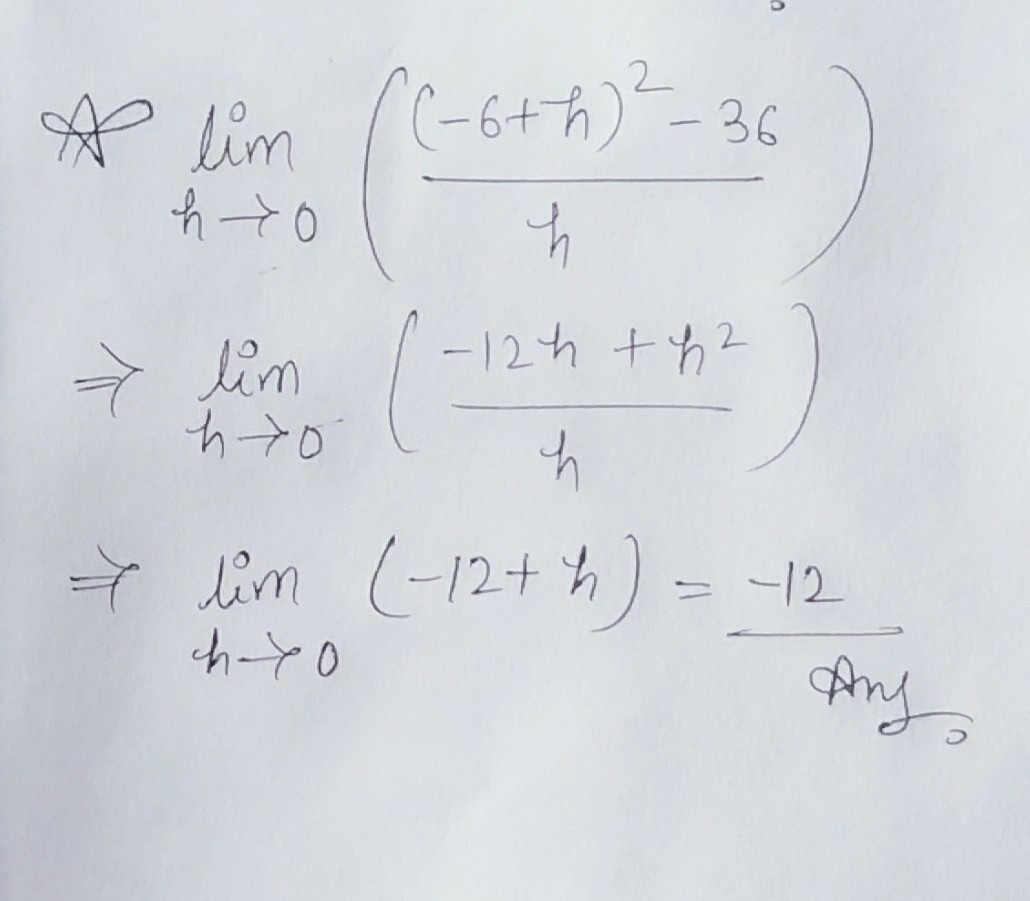 ☆ lim h→0 ( ((-6+h)² - 36) / h )
⇒ lim h→0 ( (-12h + h²) / h )
⇒ lim h→0 (-12 + h) = -12
Ans